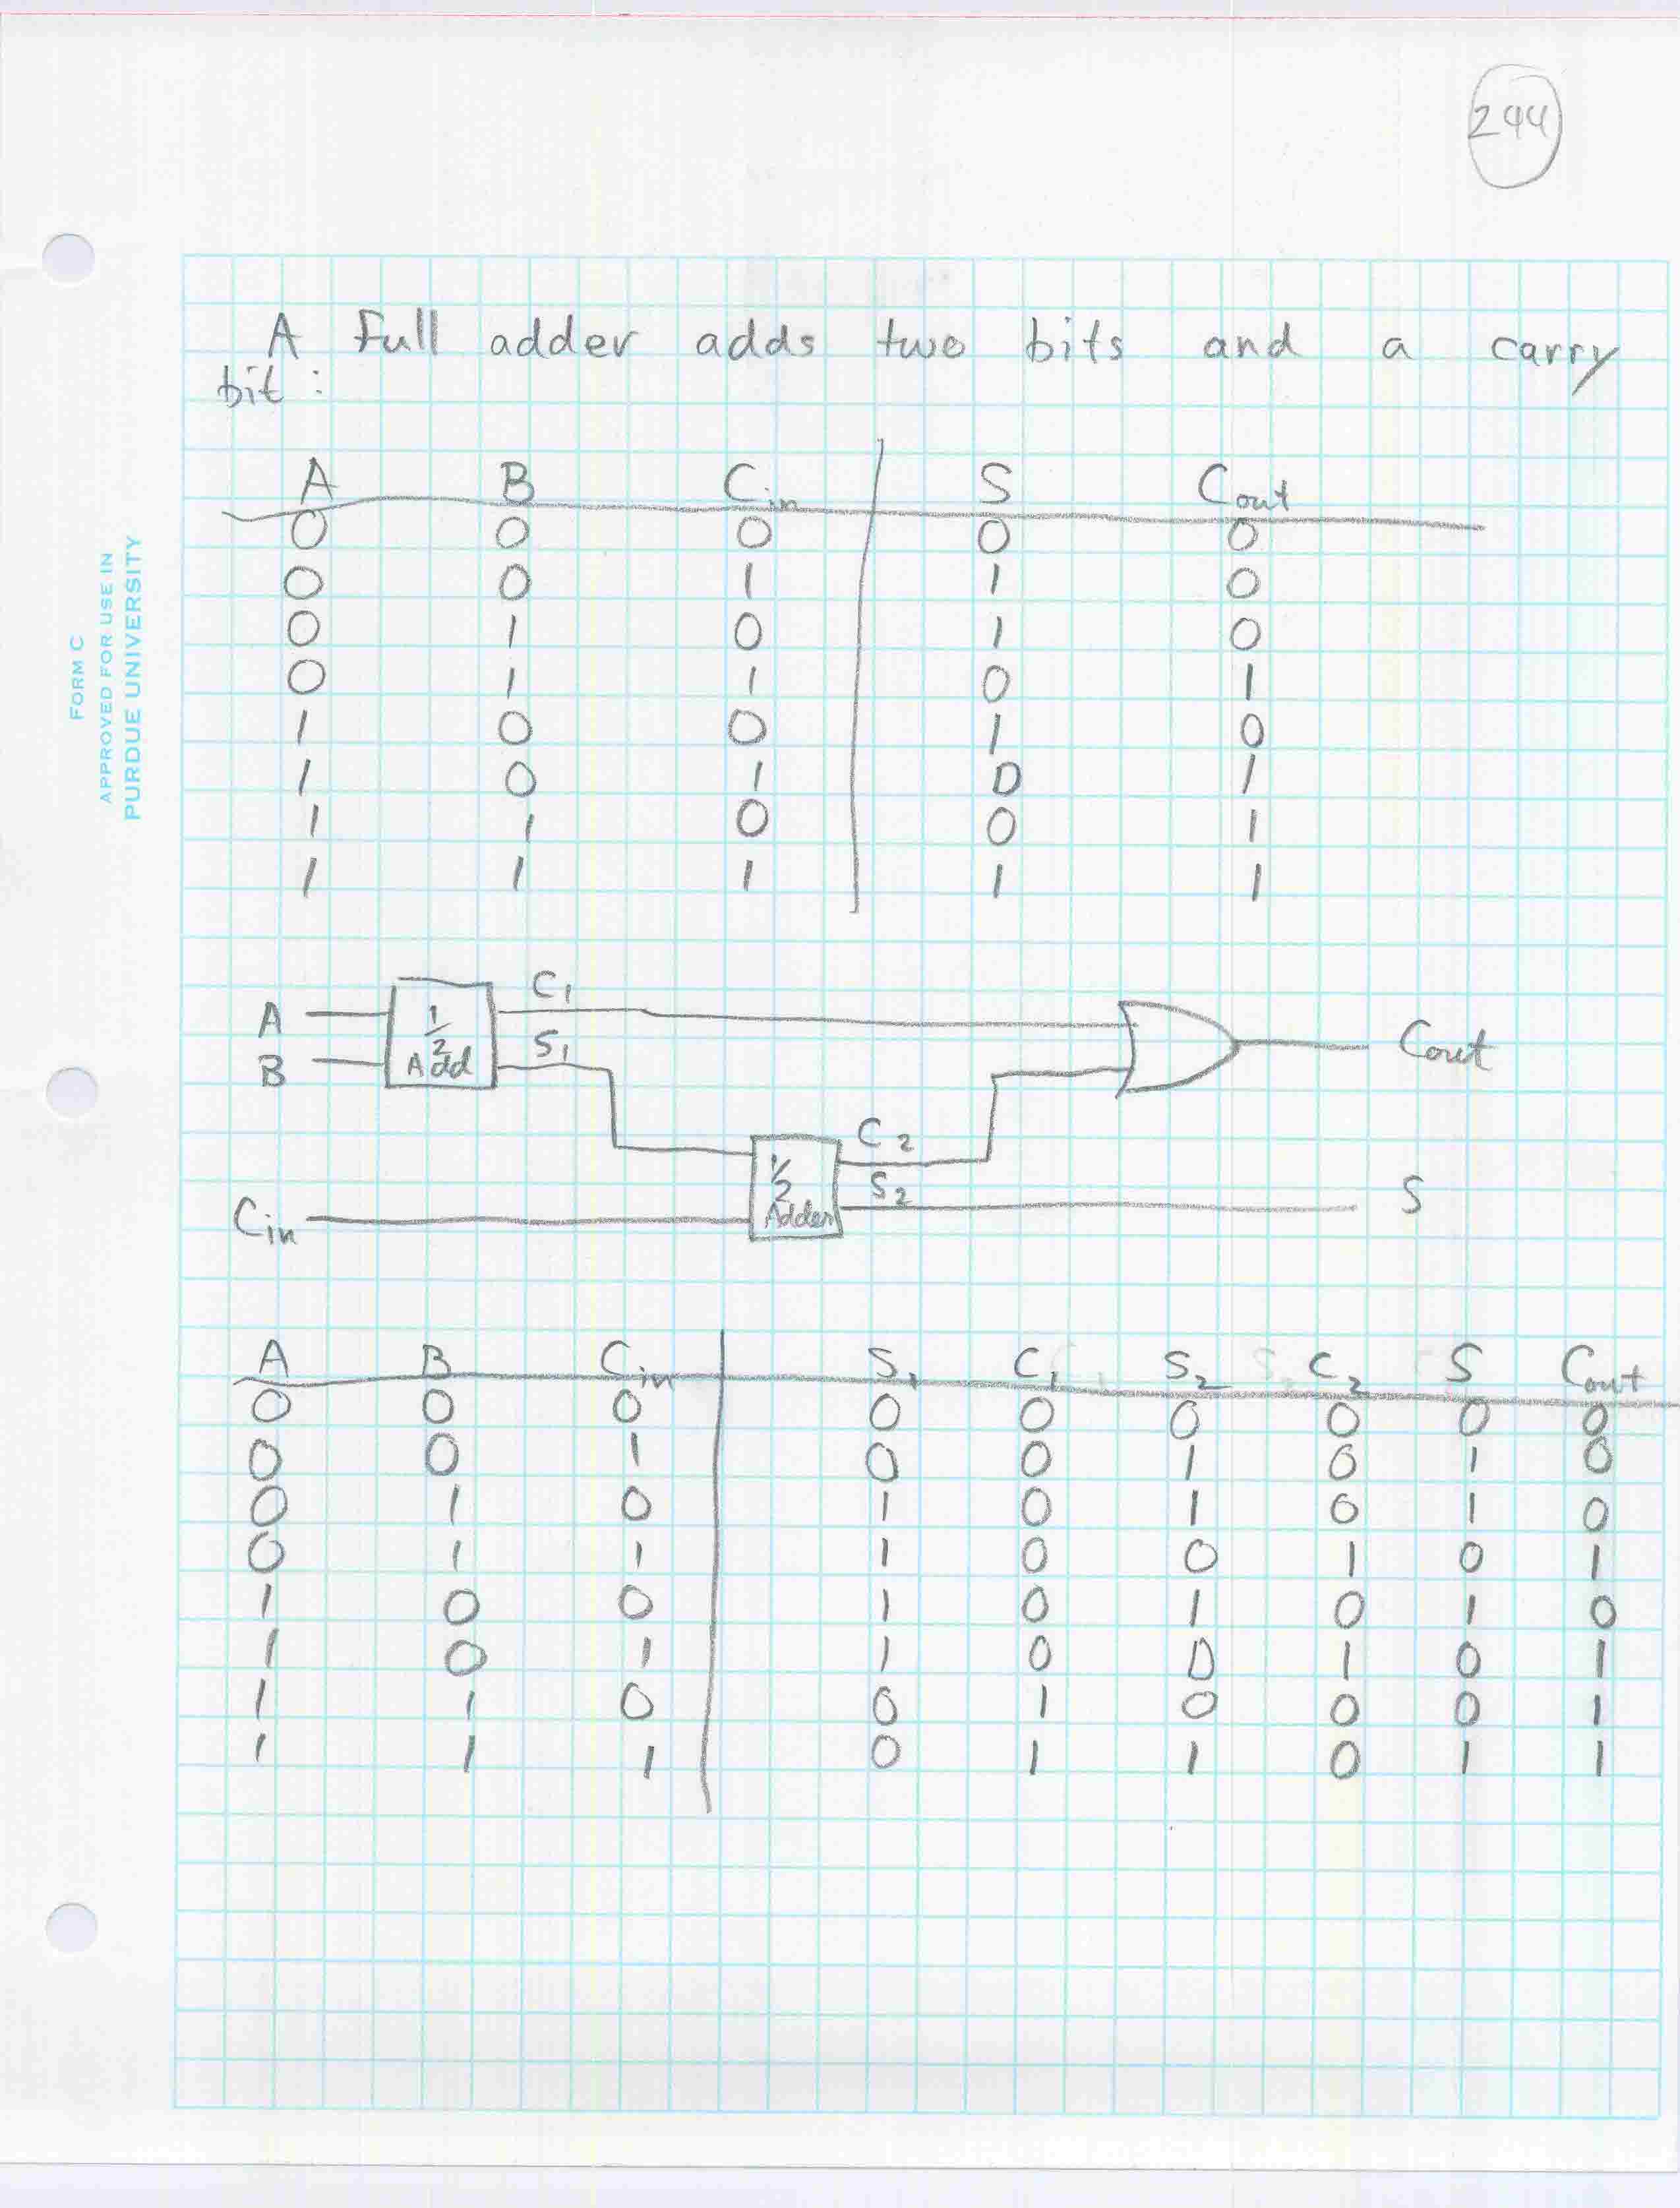 244
FORM C
APPROVED FOR USE IN
PURDUE UNIVERSITY
A full adder adds two bits and a carry
bit :
A B Cin S Cout
0 0 0 0 0
0 0 1 1 0
0 1 0 1 0
0 1 1 0 1
1 0 0 1 0
1 0 1 0 1
1 1 0 0 1
1 1 1 1 1
A
B
1/2
Add
C1
S1
Cout
Cin
1/2
Adder
C2
S2
S
A B Cin S1 C1 S2 C2 S Cout
0 0 0 0 0 0 0 0 0
0 0 1 0 0 1 0 1 0
0 1 0 1 0 1 0 1 0
0 1 1 1 0 0 1 0 1
1 0 0 1 0 1 0 1 0
1 0 1 1 0 0 1 0 1
1 1 0 0 1 0 0 0 1
1 1 1 0 1 1 0 1 1